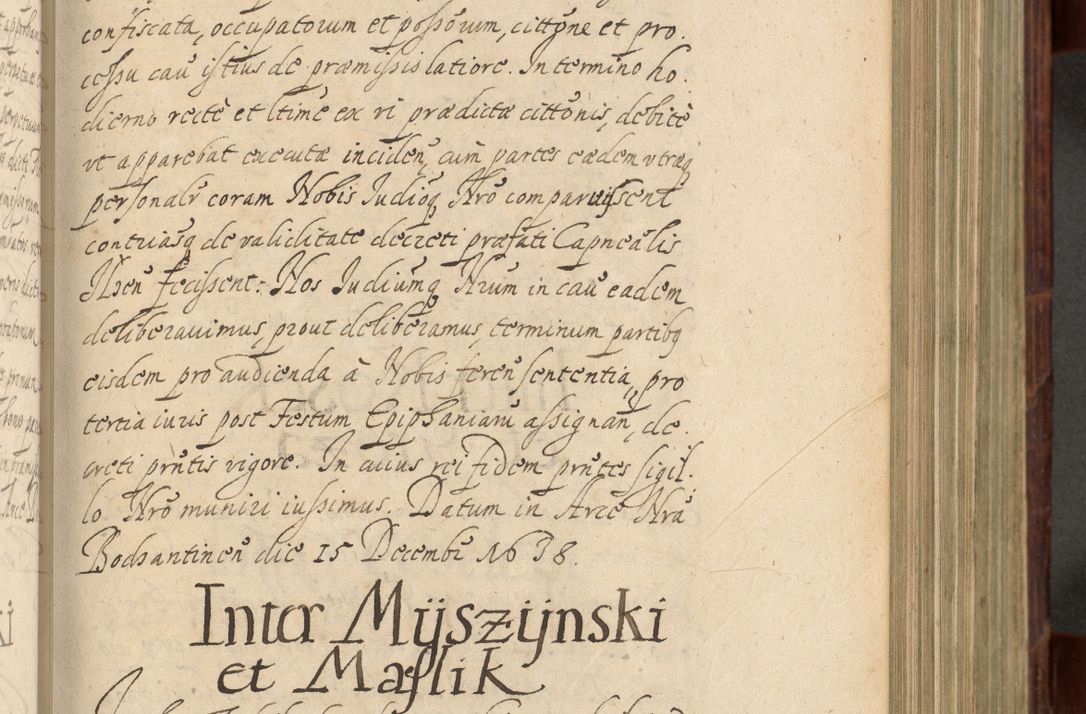 confiscata, occupatorum et possorum, cittone et pro.
cessu cau istius de præmissis latiore. In termino ho.
dierno rectè et ltime ex vi prædictæ cittonis, debitè
vt apparebat executæ inciden, cum partes eædem vtræq
personalr coram Nobis Iudioq Nro comparuissent
contriasq de validitate decreti præfati Capnealis
Illren fecissent: Nos Iudiumq Nrum in cau eadem
deliberauimus, prout deliberamus, terminum partibq
eisdem pro audienda à Nobis feren sententia, pro
tertia iuris post Festum Epiphaniaru assignan, de.
creti prntis vigore. In cuius rei fidem prntes sigil.
lo Nro muniri iussimus. Datum in Arce Nra
Bodsantinen die 15 Decembr 1638.
Inter Mÿszÿnski
et Maslik